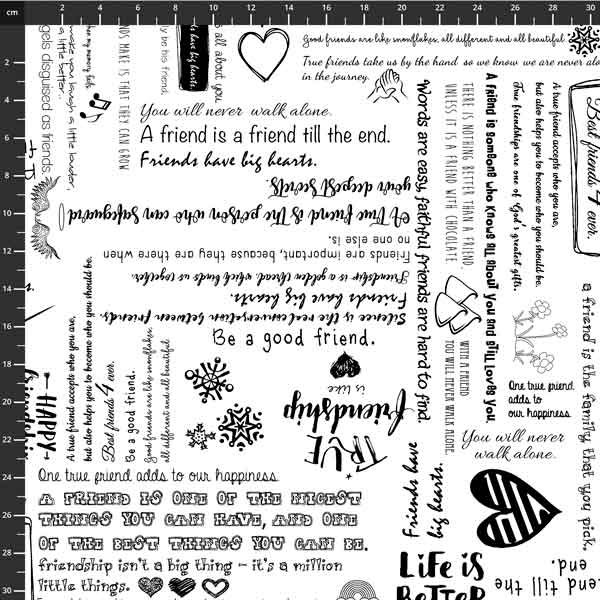 cm 2 4 6 8 10 12 14 16 18 20 22 24 26 28 30
2
4
6
8
10
12
14
16
18
20
22
24
26
28
30
gels disguised as friends.
make you laugh a little louder,
a little better..
when my memory fails.
NDS MAKE IS THAT THEY CAN GROW
ly be his friend.
have big hearts.
is all about you
Good friends are like snowflakes, all different and all beautiful
True friends take us by the hand so we know we are never alo
in the journey.
You will never walk alone.
A friend is a friend till the end.
Friends have big hearts.
your deepest secrets.
A True friend is the person who can safeguard
no one else is.
Friends are important, because they are there when
Friendship is a golden thread, which binds us together.
Friends have big hearts.
Silence is the real conversation between friends.
Be a good friend.
Words are easy, faithful friends are hard to find.
THERE IS NOTHING BETTER THAN A FRIEND
UNLESS IT IS A FRIEND WITH CHOCOLATE.
A friend is someone who knows all about you and still loves you.
True friendships are one of God's greatest gifts.
A true friend accepts who you are,
but also helps you to become who you should be.
Best friends 4 ever.
WITH A FRIEND
YOU WILL NEVER WALK ALONE.
a friend is the family that you pick.
One true friend
adds to
our happiness.
You will never
walk alone.
TRUE
friendship
is like
-HAPPY-
friendship
A true friend accepts who you are,
but also helps you to become who you should be.
Best friends 4 ever.
Be a good friend.
Good friends are like snowflakes,
all different and all beautiful
Friends have
big hearts.
One true friend adds to our happiness.
A FRIEND IS ONE OF THE NICEST
THINGS YOU CAN HAVE, AND ONE
OF THE BEST THINGS YOU CAN BE.
friendship isn't a big thing - it's a million
little things.
Life is
BETTER
nd till the
end.